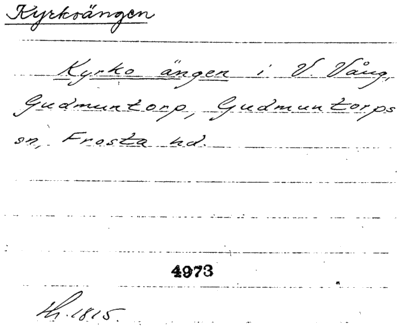 Kyrkoängen
Kyrko ängen i V. Vång,
Gudmuntorp, Gudmuntorps
sn, Frosta hd.
4973
Hr. 1815.